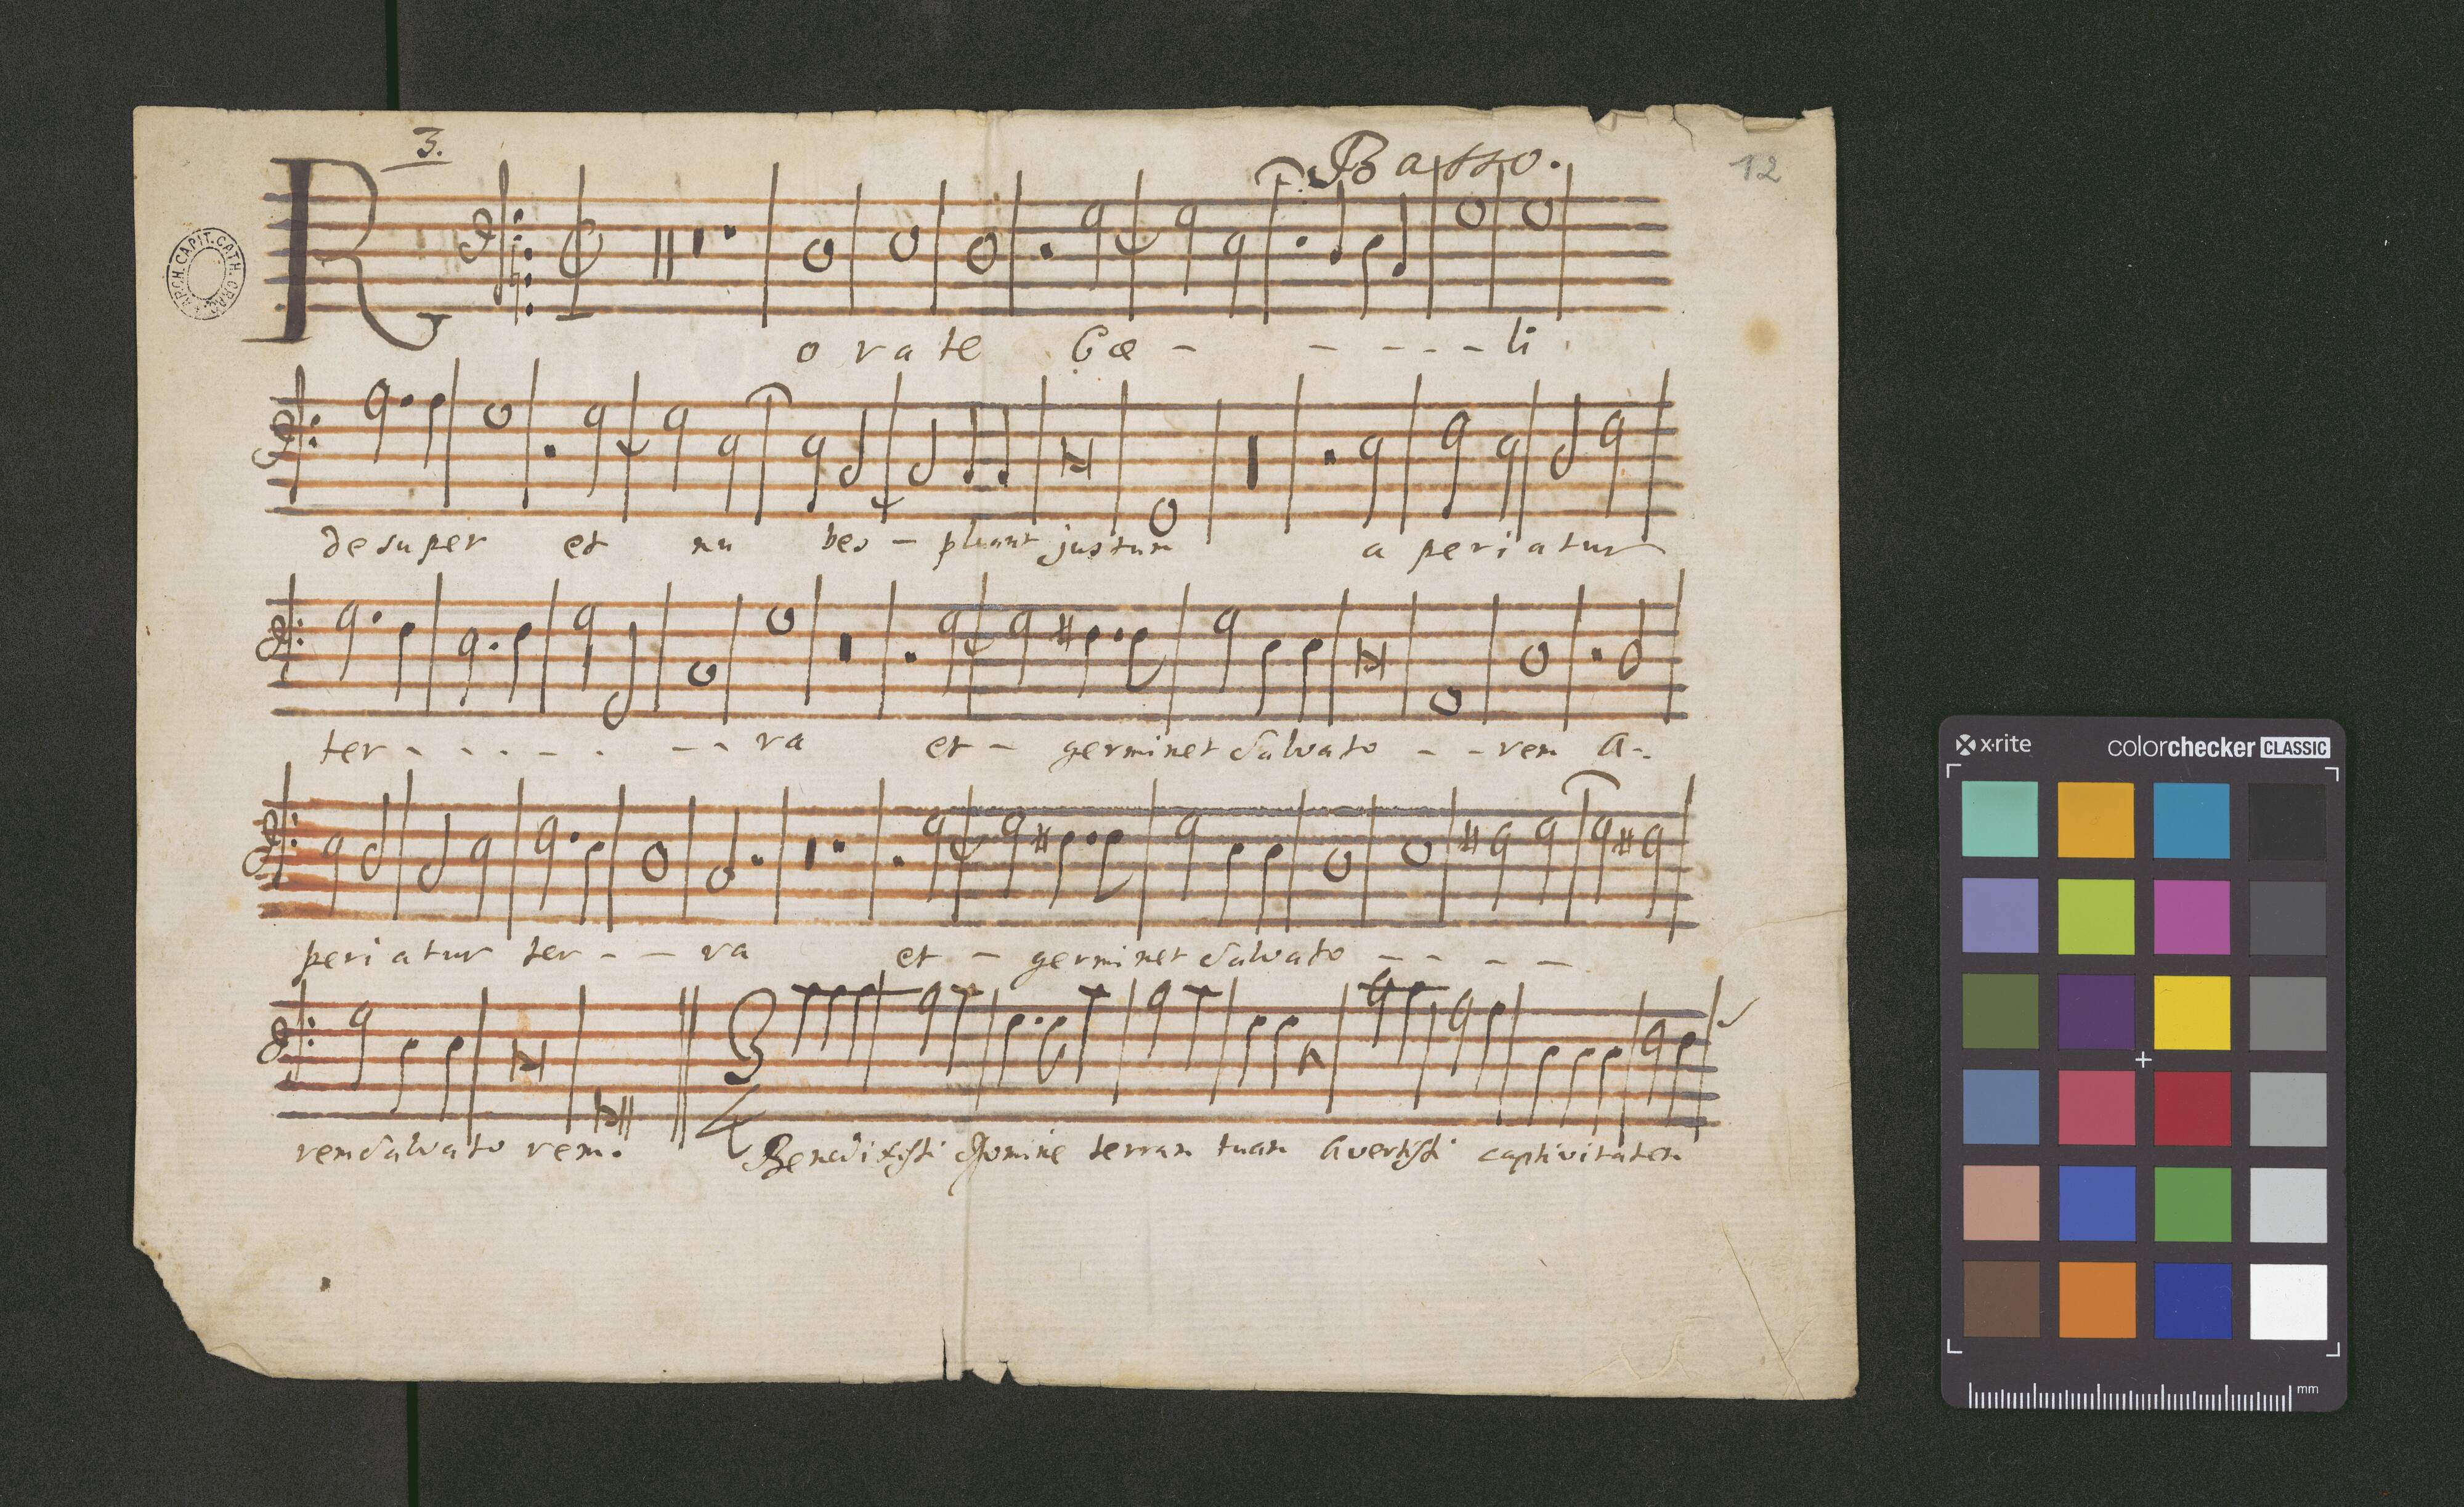 3.
Basso.
12
ARCH. CAPIT. CATH. CRAC.
R
o ra te Cæ - - - - - li
de su per et nu bes - pluant justum a peri a tur
ter - - - - - - - ra et - germinet Salvato - - rem a -
peri a tur ter - - ra et - germinet Salvato - - - -
rem Salvato rem. Benedixisti Domine terram tuam avertisti captivitatem
3
4
x·rite colorchecker CLASSIC
mm